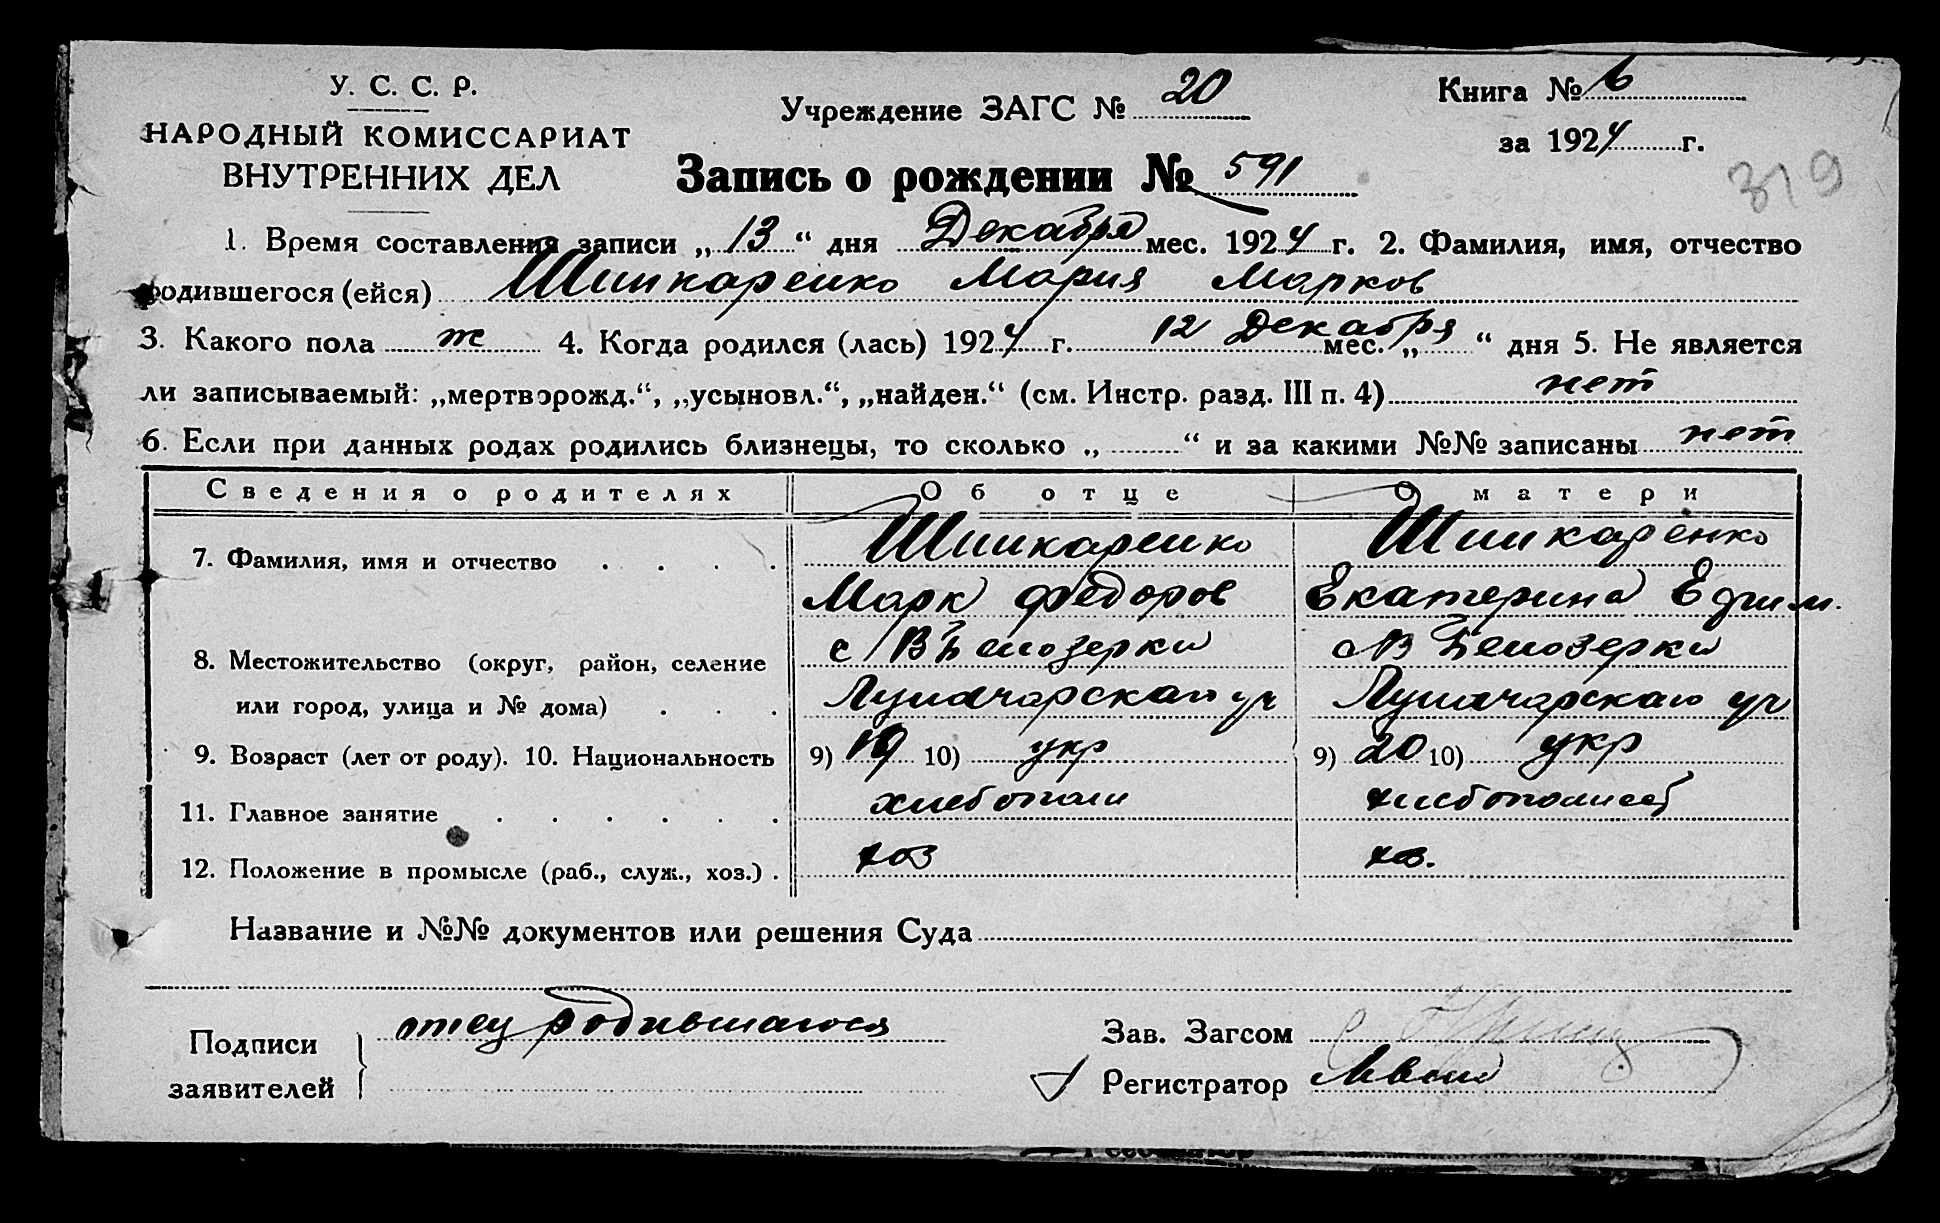 У. С. С. Р.
НАРОДНЫЙ КОМИССАРИАТ
ВНУТРЕННИХ ДЕЛ
Учреждение ЗАГС № 20
Книга № 6
за 1924 г.
Запись о рождении № 591
319
1. Время составления записи „13“ дня Декабря мес. 1924 г. 2. Фамилия, имя, отчество
родившегося (ейся) Шинкаренко Мария Марков
3. Какого пола ж 4. Когда родился (лась) 1924 г. 12 Декабря мес. „ “ дня 5. Не является
ли записываемый: „мертворожд.“, „усыновл.“, „найден.“ (см. Инстр. разд. III п. 4) нет
6. Если при данных родах родились близнецы, то сколько „ “ и за какими №№ записаны нет
Сведения о родителях Об отце О матери
7. Фамилия, имя и отчество Шинкаренко Шинкаренко
Марк Федоров Екатерина Ефим.
8. Местожительство (округ, район, селение с В Белозерки с В Белозерки
или город, улица и № дома) уч уч
9. Возраст (лет от роду). 10. Национальность 9) 19 10) укр 9) 20 10) укр
11. Главное занятие хлебопаш
12. Положение в промысле (раб., служ., хоз.) хоз хоз.
Название и №№ документов или решения Суда
Подписи заявителей отец родившагося
Зав. Загсом
Регистратор